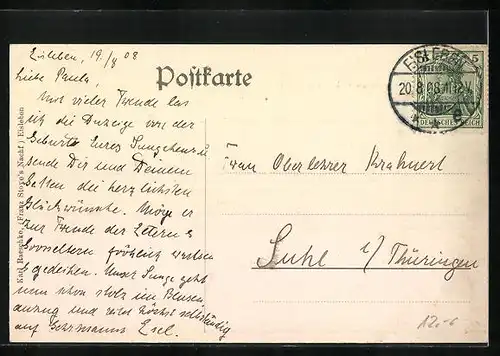 Eisleben, 19./8 08
Liebe Paula,
Mit vieler Freude las
ich die Anzeige von der
Geburt Eures Jungchens u.
sende Dir und Deinem
Gatten die herzlichsten
Glückwünsche. Möge er
zur Freude der Eltern &
Grosseltern fröhlich wachsen
& gedeihen. Unser Junge geht
nun schon stolz im Blusen-
anzug und reitet höchst selbständig
auf Esel.
Postkarte
EISLEBEN
20.8.08.11-12V.
DEUTSCHES REICH
5
Frau Oberlehrer Krahnert
Suhl i/ Thüringen
Karl Haephke, (Franz Stope's Nachf.) Eisleben